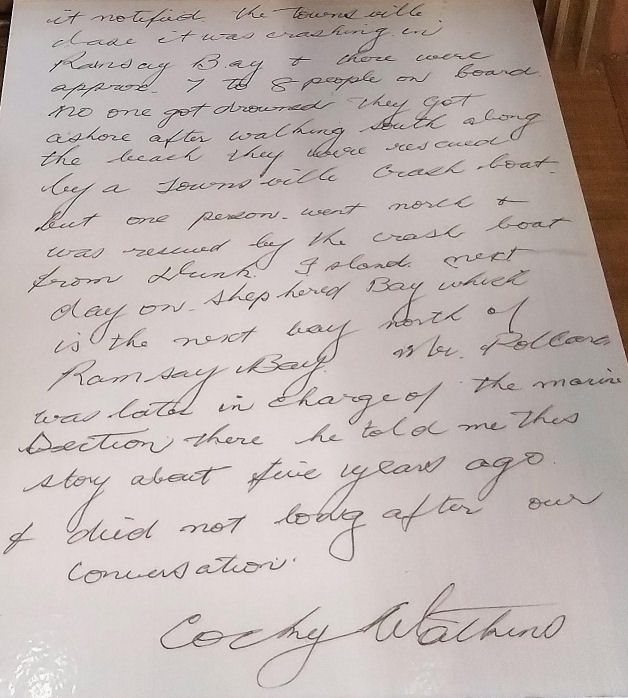 it notified the Townsville
it was crashing in
Ramsay Bay & there were
approx. 7 to 8 people on board.
No one got drowned they got
ashore after walking south along
the beach they were rescued
by a Townsville crash boat.
but one person. went north &
was rescued by the crash boat
from Dunk Island next
day on. Shephered Bay which
is the next bay north of
Ramsay Bay. Mr.
was later in charge of the marine
Section there he told me this
story about five years ago
& died not long after our
conversation.
Cocky Watkins